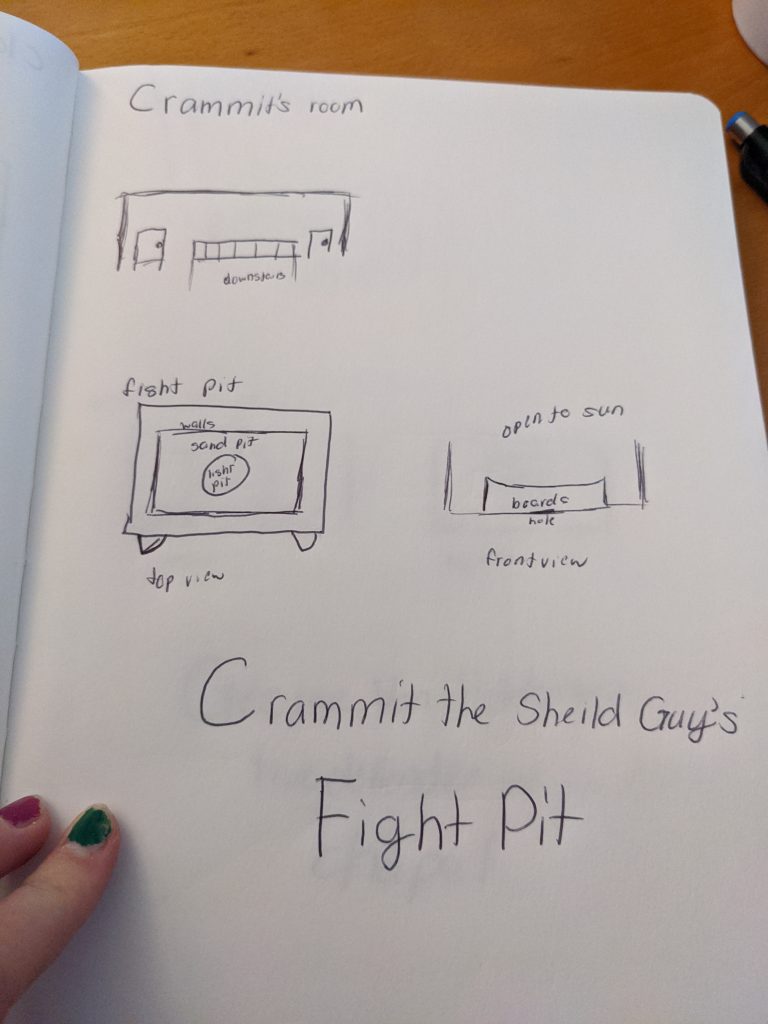 Crammit's room
downstairs
fight pit
walls
sand pit
fight
pit
top view
open to sun
boards
hole
front view
Crammit the Sheild Guy's
Fight Pit